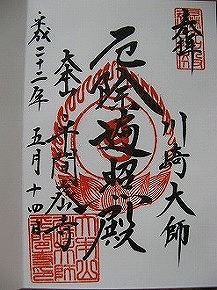 奉拝
川崎大師
厄除遍照殿
大本山平間寺
平成二十二年五月十四日